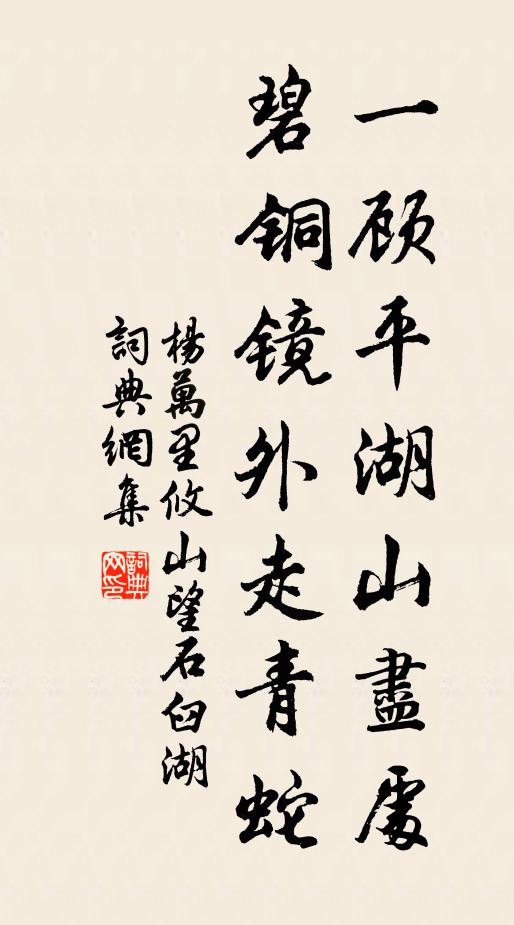 一顾平湖山盡處
碧铜镜外走青蛇
楊萬里攸山望石臼湖
詞典網集
詞典网印